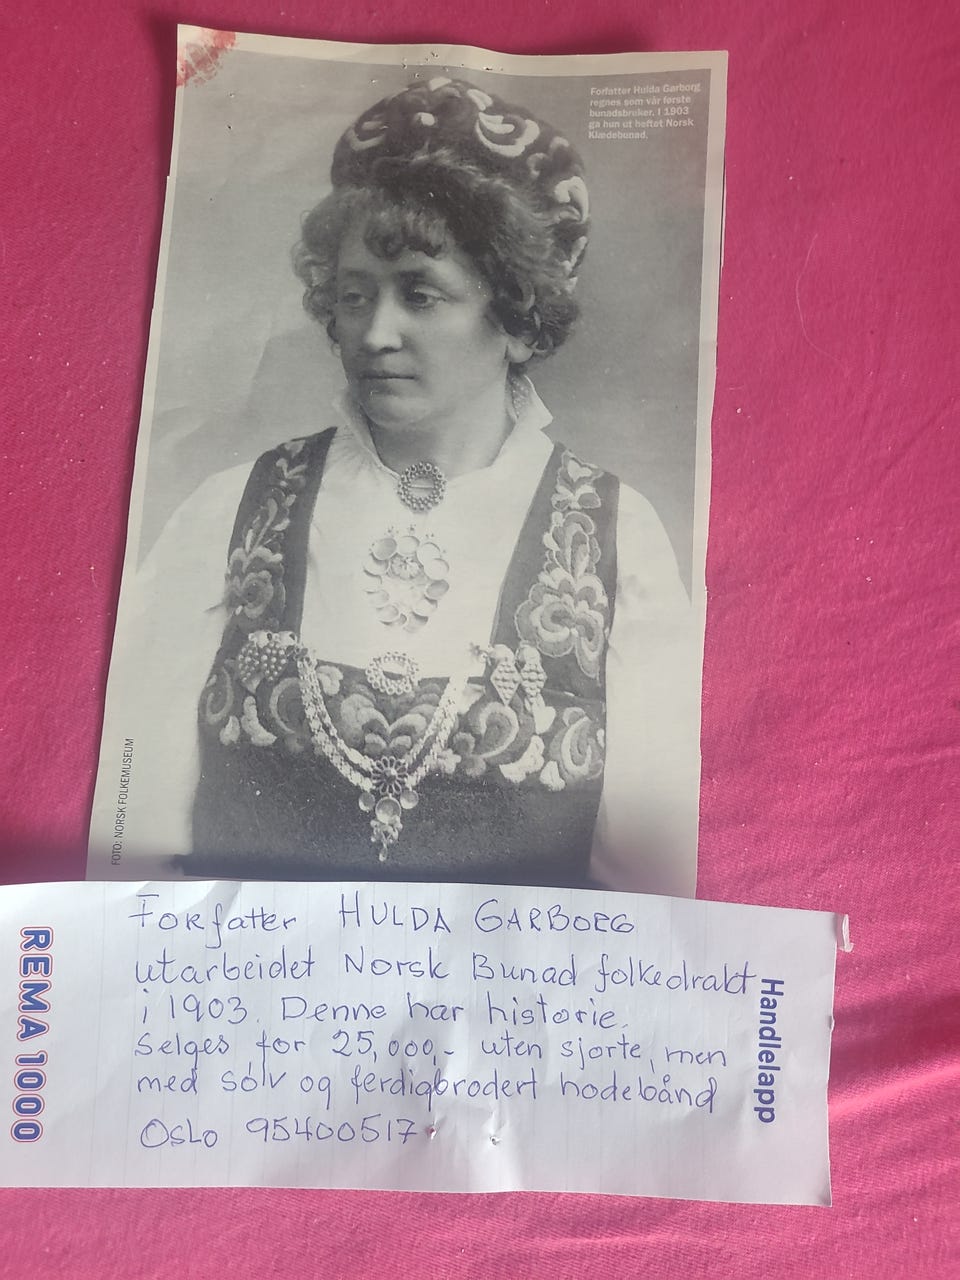 Forfatter Hulda Garborg
regnes som vår første
bunadsbruker. I 1903
ga hun ut heftet Norsk
Klædebunad.
FOTO: NORSK FOLKEMUSEUM
Forfatter HULDA GARBORG
utarbeidet Norsk Bunad folkedrakt
i 1903. Denne har historie.
Selges for 25,000,- uten sjorte, men
med sølv og ferdigbrodert hodebånd
Oslo 95400517
REMA 1000
Handlelapp